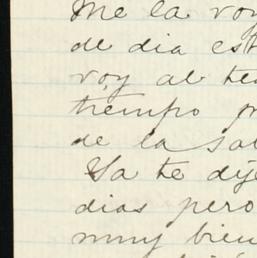 Me la voy
de dia est
voy al te
tiempo p
de la sal
Ya te dije
dias pero
muy bien